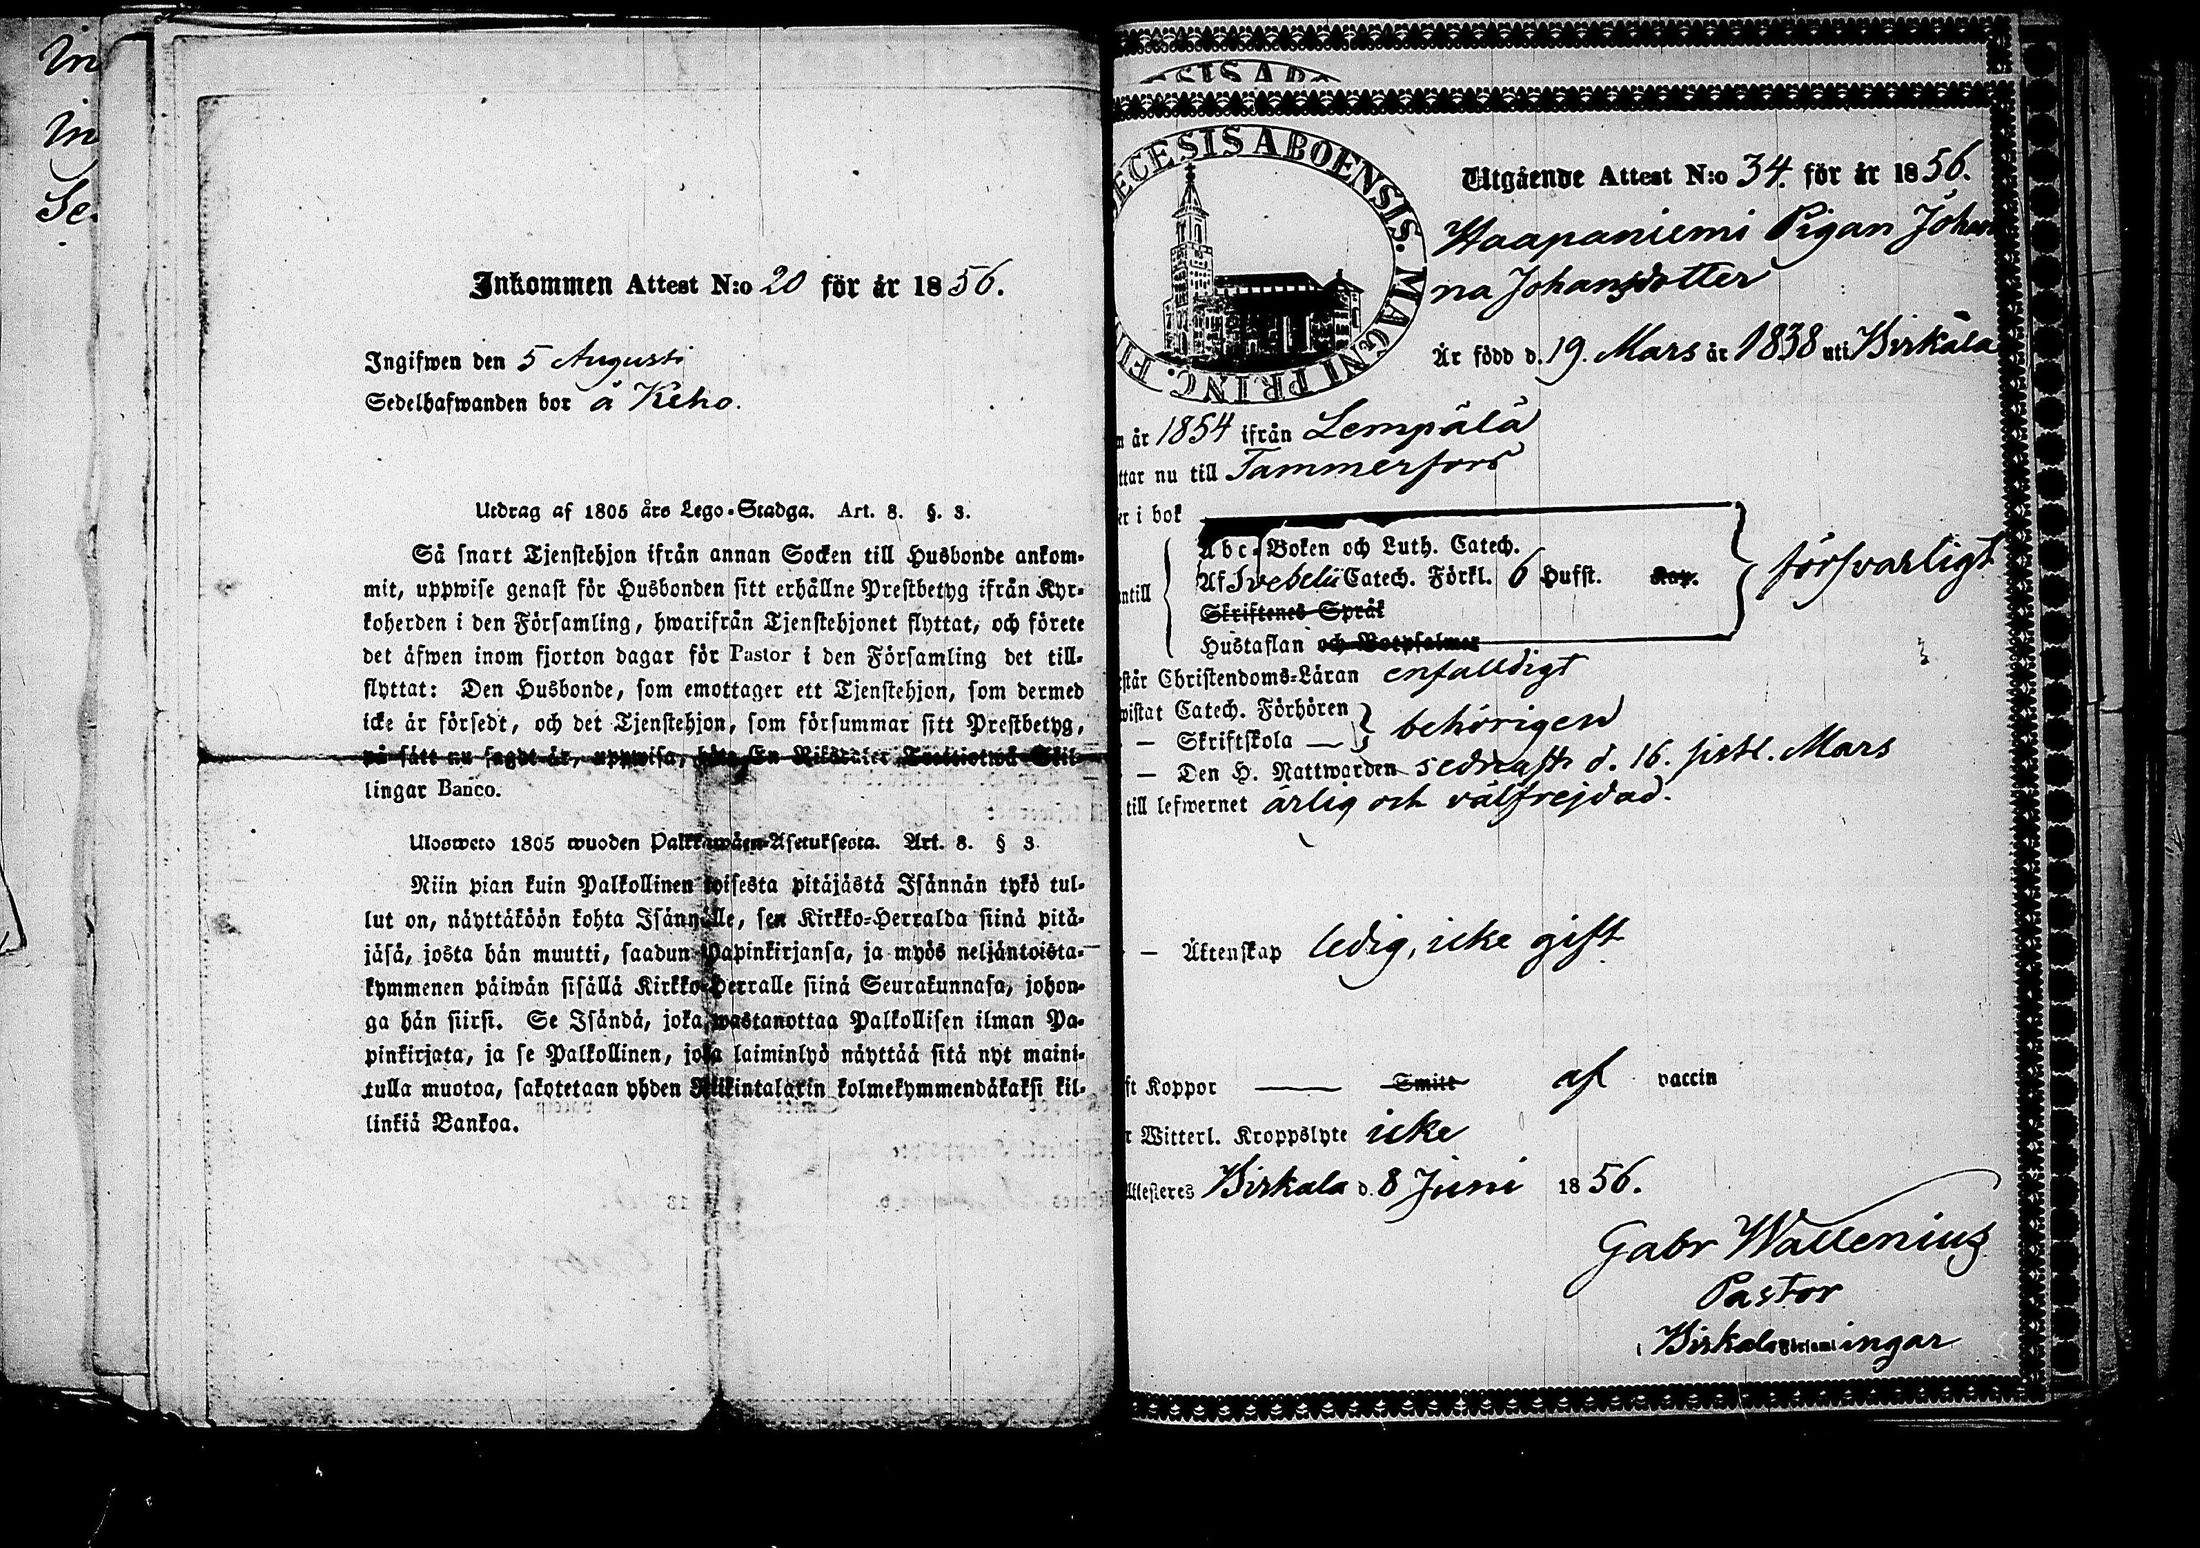 Inkommen Attest N:o 20 för år 1856.
Ingifwen den 5 Augusti
Sedelhafwanden bor å Keho.
Utdrag af 1805 års Lego-Stadga. Art. 8. §. 3.
Så snart Tjenstehjon ifrån annan Socken till Husbonde ankom-
mit, uppwise genast för Husbonden sitt erhållne Prestbetyg ifrån Kyr-
koherden i den Församling, hwarifrån Tjenstehjonet flyttat, och förete
det äfwen inom fjorton dagar för Pastor i den Församling det till-
flyttat: Den Husbonde, som emottager ett Tjenstehjon, som dermed
icke är försedt, och det Tjenstehjon, som försummar sitt Prestbetyg,
på sätt nu sagdt är, uppwisa, böte En Riksdaler Trettiotwå Skil-
lingar Banco.
Ulosweto 1805 wuoden Palkkawäen-Asetuksesta. Art. 8. § 3.
Niin pian kuin Palkollinen toisesta pitäjästä Isännän tykö tul-
lut on, näyttäköön kohta Isännälle, sen Kirkko-Herralda siinä pitä-
jäsä, josta hän muutti, saadun Papinkirjansa, ja myös neljäntoista-
kymmenen päiwän sisällä Kirkko-Herralle siinä Seurakunnasa, johon-
ga hän siirsi. Se Isändä, joka wastanottaa Palkollisen ilman Pa-
pinkirjata, ja se Palkollinen, joka laiminlyö näyttää sitä nyt maini-
tulla muotoa, sakotetaan yhden Riikintalarin kolmekymmendäkaksi kil-
linkiä Bankoa.
ECESIS ABOENSIS. MAGNI PRINC. FI
Utgående Attest N:o 34. för år 1856.
Haapaniemi Pigan Johan
na Johansdotter
Är född d. 19. Mars år 1838 uti Birkala
år 1854 ifrån Lempälä
ttar nu till Tammerfors
er i bok
Abc-Boken och Luth. Catech.
Af Svebelii Catech. Förkl. 6 Hufst. Kap.
ntill
försvarligt
Skriftenes Språk
Hustaflan och Botpsalmer
står Christendoms-Läran enfalldigt
wistat Catech. Förhören
behörigen
— Skriftskola —
— Den H. Nattwarden sednast d. 16. sistl. Mars
till lefwernet ärlig och välfrejdad.
— Äktenskap ledig, icke gift
ft Koppor — Smitt af vaccin
r Witterl. Kroppslyte icke
Attesteres Birkala d. 8 Juni 1856.
Gabr Wallenius
Pastor
i Birkala Församlingar